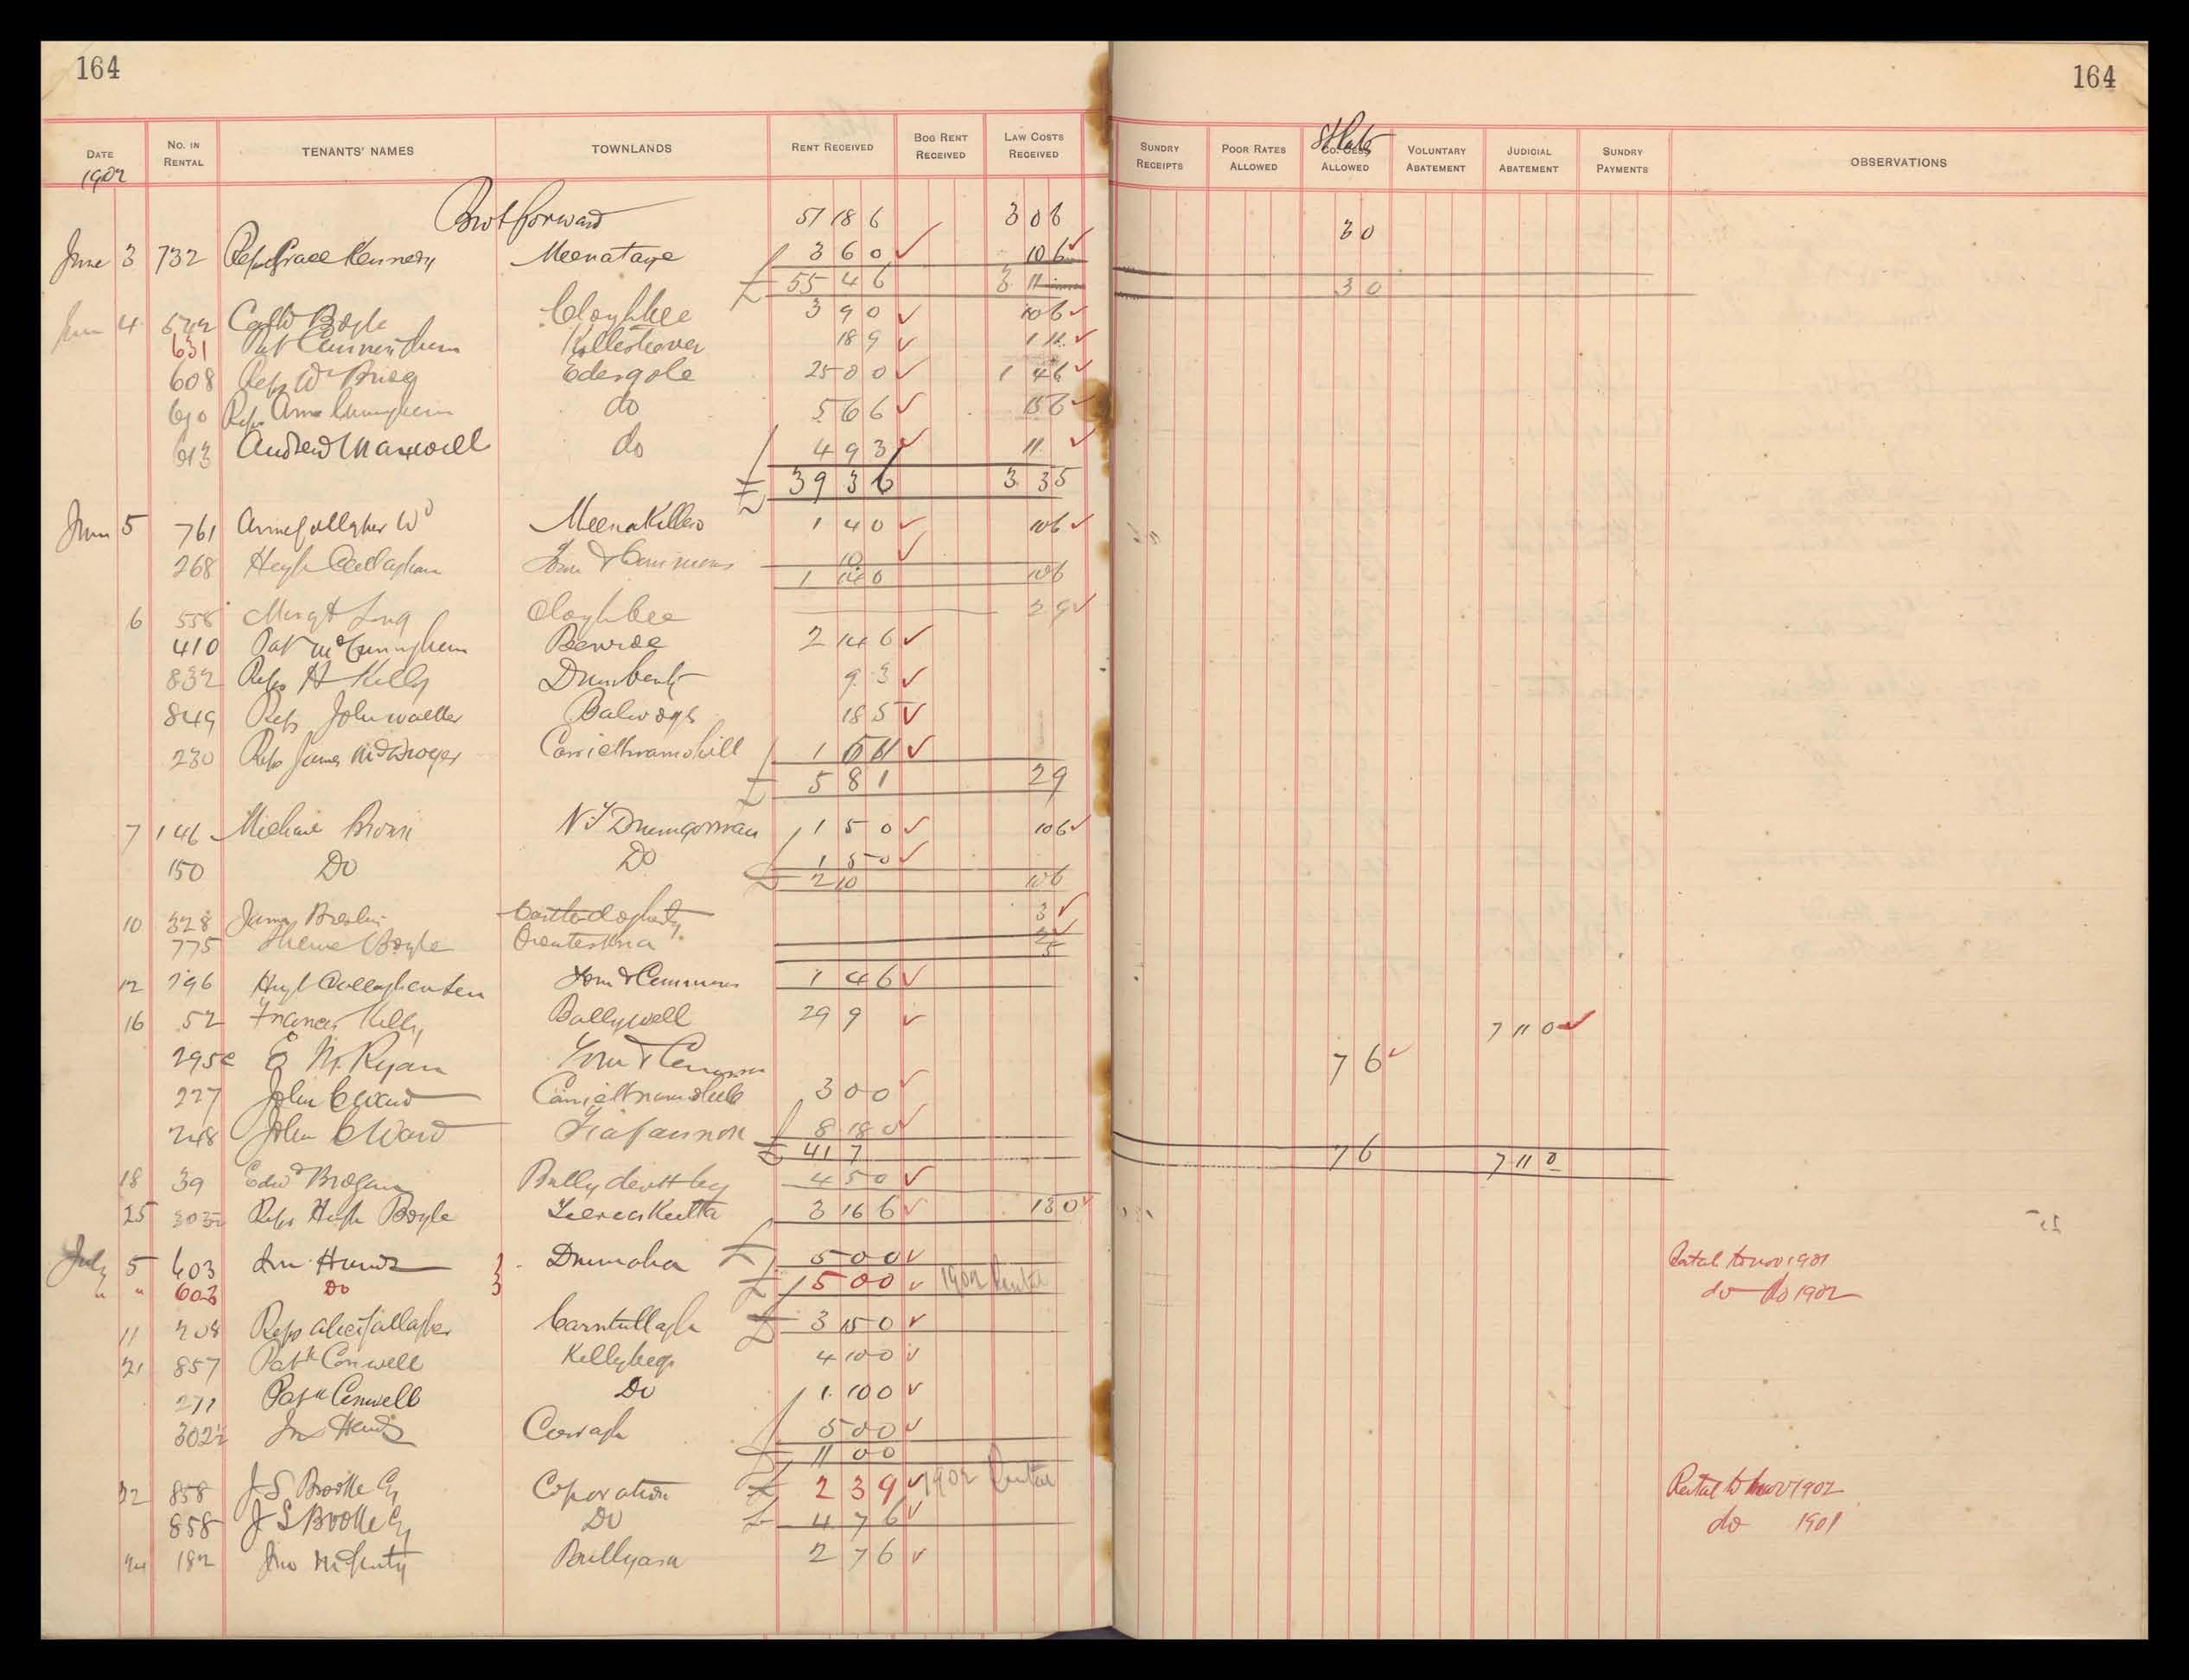 164
164
DATE 1902 No. IN RENTAL TENANTS' NAMES TOWNLANDS RENT RECEIVED BOG RENT RECEIVED LAW COSTS RECEIVED SUNDRY RECEIPTS POOR RATES ALLOWED Co. CESS ALLOWED VOLUNTARY ABATEMENT JUDICIAL ABATEMENT SUNDRY PAYMENTS OBSERVATIONS
Brot forward 51 18 6 3 0 6 3 0
June 3 732 Reps Grace Kennedy Meenatage 3 6 0 ✓ 10 6 ✓
£ 55 4 6 3 11 3 0
June 4 Boyle Cloghbee 3 9 0 ✓ 10 6 ✓
631 Pat Cunningham 18 9 ✓ 1 11 ✓
608 Reps Wm Edergole 25 0 0 ✓ 1 4 6 ✓
610 Reps Anne Cunningham do 5 6 6 ✓ 15 6 ✓
613 Andrew Maxwell do 4 9 3 ✓ 11 ✓
£ 39 3 6 3 3 5
June 5 761 Anne Gallagher Wd Meenakillew 1 4 0 ✓ 10 6 ✓
268 Hugh Callaghan Town & Commons 10 ✓
1 14 0 10 6
6 558 Margt Long Cloghbee 2 9 ✓
410 Pat McCunningham Benroe 2 14 6 ✓
832 Reps H Kelly 9 3 ✓
849 Reps John Walker Balwoges 18 5 ✓
230 Reps James McDwyer 1 ✓
£ 5 8 1 2 9
7 146 Michael Drumgorman 1 5 0 ✓ 10 6 ✓
150 Do Do 1 5 0 ✓
£ 2 10 10 6
10 328 James Breslin 3 ✓
775 Boyle 2 ✓
5
12 296 Hugh Callaghan Senr Town & Commons 1 4 6 ✓
16 52 Francis Kelly Ballyweell 29 9 ✓ 7 11 0 ✓
295c E M Ryan Town & Commons 7 6 ✓
227 John C Ward 3 0 0 ✓
248 John C Ward Liafannon 8 18 0 ✓
£ 41 7 7 6 7 11 0
18 39 Edwd Brogan 4 5 0 ✓
25 Reps Hugh Boyle 3 16 6 ✓ 13 0 ✓
July 5 603 Jn. Drumoha £ 5 0 0 ✓ Rental to nov 1901
" " 603 Do £ 5 0 0 ✓ 1902 Rental do do 1902
11 208 Reps Alice Gallagher Carntullagh £ 3 15 0 ✓
21 857 Patk Conwell Killybegs 4 10 0 ✓
271 Patk Conwell Do 1 10 0 ✓
Corragh 5 0 0 ✓
£ 11 0 0
22 858 J S Brooke Esq Coporation £ 2 3 9 ✓ 1902 Rental Rental to Nov 1902
858 J S Brooke Esq Do £ 4 7 6 ✓ do 1901
24 182 Jno McGinty Ballyara 2 7 6 ✓